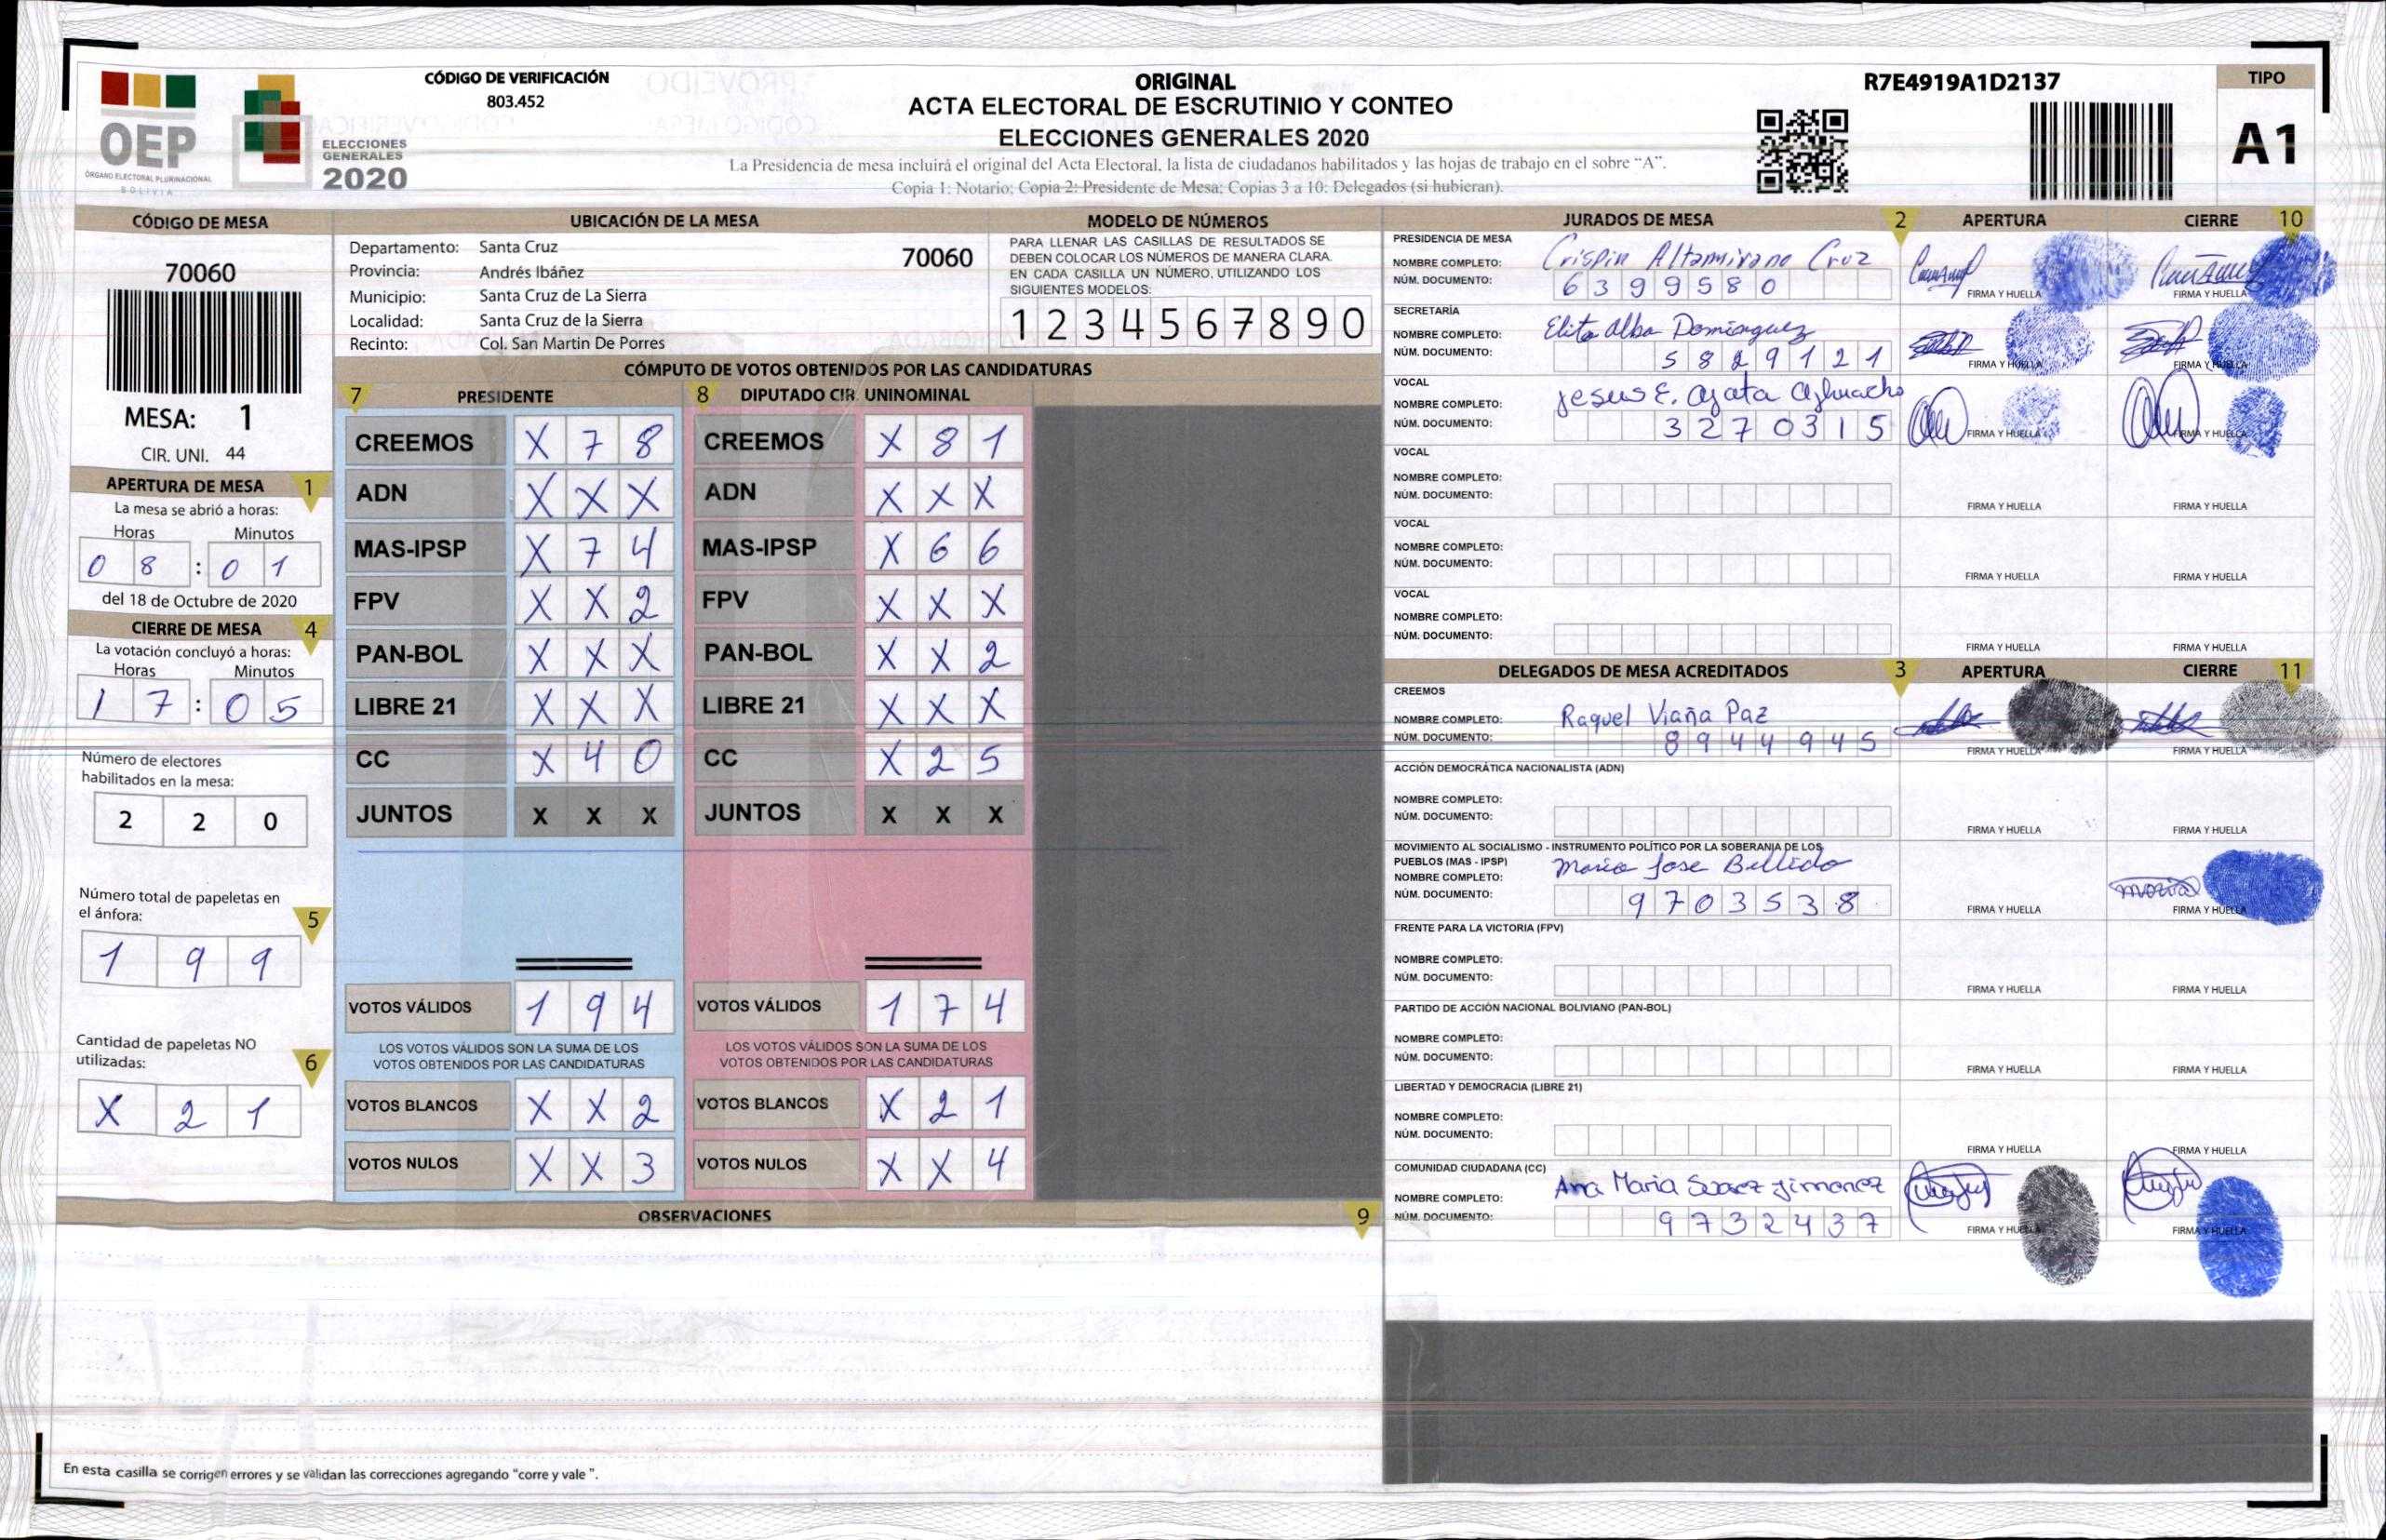 OEP
ÓRGANO ELECTORAL PLURINACIONAL
BOLIVIA
ELECCIONES
GENERALES
2020
CÓDIGO DE VERIFICACIÓN
803.452
ORIGINAL
ACTA ELECTORAL DE ESCRUTINIO Y CONTEO
ELECCIONES GENERALES 2020
La Presidencia de mesa incluirá el original del Acta Electoral, la lista de ciudadanos habilitados y las hojas de trabajo en el sobre “A”.
Copia 1: Notario; Copia 2: Presidente de Mesa; Copias 3 a 10: Delegados (si hubieran).
R7E4919A1D2137
TIPO
A1
CÓDIGO DE MESA
70060
MESA: 1
CIR. UNI. 44
APERTURA DE MESA 1
La mesa se abrió a horas:
Horas Minutos
0 8 : 0 1
del 18 de Octubre de 2020
CIERRE DE MESA 4
La votación concluyó a horas:
Horas Minutos
1 7 : 0 5
Número de electores
habilitados en la mesa:
2 2 0
Número total de papeletas en
el ánfora: 5
1 9 9
Cantidad de papeletas NO
utilizadas: 6
X 2 1
UBICACIÓN DE LA MESA
Departamento: Santa Cruz 70060
Provincia: Andrés Ibáñez
Municipio: Santa Cruz de La Sierra
Localidad: Santa Cruz de la Sierra
Recinto: Col. San Martin De Porres
MODELO DE NÚMEROS
PARA LLENAR LAS CASILLAS DE RESULTADOS SE
DEBEN COLOCAR LOS NÚMEROS DE MANERA CLARA.
EN CADA CASILLA UN NÚMERO, UTILIZANDO LOS
SIGUIENTES MODELOS:
1 2 3 4 5 6 7 8 9 0
CÓMPUTO DE VOTOS OBTENIDOS POR LAS CANDIDATURAS
7 PRESIDENTE 8 DIPUTADO CIR. UNINOMINAL
CREEMOS X 7 8 CREEMOS X 8 1
ADN X X X ADN X X X
MAS-IPSP X 7 4 MAS-IPSP X 6 6
FPV X X 2 FPV X X X
PAN-BOL X X X PAN-BOL X X 2
LIBRE 21 X X X LIBRE 21 X X X
CC X 4 0 CC X 2 5
JUNTOS X X X JUNTOS X X X
VOTOS VÁLIDOS 1 9 4 VOTOS VÁLIDOS 1 7 4
LOS VOTOS VÁLIDOS SON LA SUMA DE LOS LOS VOTOS VÁLIDOS SON LA SUMA DE LOS
VOTOS OBTENIDOS POR LAS CANDIDATURAS VOTOS OBTENIDOS POR LAS CANDIDATURAS
VOTOS BLANCOS X X 2 VOTOS BLANCOS X 2 1
VOTOS NULOS X X 3 VOTOS NULOS X X 4
OBSERVACIONES 9
En esta casilla se corrigen errores y se validan las correcciones agregando “corre y vale ”.
JURADOS DE MESA 2 APERTURA CIERRE 10
PRESIDENCIA DE MESA
NOMBRE COMPLETO: Crispin Altamirano Cruz
NÚM. DOCUMENTO: 6 3 9 9 5 8 0 FIRMA Y HUELLA FIRMA Y HUELLA
SECRETARÍA
NOMBRE COMPLETO: Elita Alba Dominguez
NÚM. DOCUMENTO: 5 8 2 9 1 2 1 FIRMA Y HUELLA FIRMA Y HUELLA
VOCAL
NOMBRE COMPLETO: Jesus E.
NÚM. DOCUMENTO: 3 2 7 0 3 1 5 FIRMA Y HUELLA FIRMA Y HUELLA
VOCAL
NOMBRE COMPLETO:
NÚM. DOCUMENTO: FIRMA Y HUELLA FIRMA Y HUELLA
VOCAL
NOMBRE COMPLETO:
NÚM. DOCUMENTO: FIRMA Y HUELLA FIRMA Y HUELLA
VOCAL
NOMBRE COMPLETO:
NÚM. DOCUMENTO: FIRMA Y HUELLA FIRMA Y HUELLA
DELEGADOS DE MESA ACREDITADOS 3 APERTURA CIERRE 11
CREEMOS
NOMBRE COMPLETO: Raquel Viaña Paz
NÚM. DOCUMENTO: 8 9 4 4 9 4 5 FIRMA Y HUELLA FIRMA Y HUELLA
ACCIÓN DEMOCRÁTICA NACIONALISTA (ADN)
NOMBRE COMPLETO:
NÚM. DOCUMENTO: FIRMA Y HUELLA FIRMA Y HUELLA
MOVIMIENTO AL SOCIALISMO - INSTRUMENTO POLÍTICO POR LA SOBERANIA DE LOS
PUEBLOS (MAS - IPSP)
NOMBRE COMPLETO: Maria Jose Bellido
NÚM. DOCUMENTO: 9 7 0 3 5 3 8 FIRMA Y HUELLA FIRMA Y HUELLA
FRENTE PARA LA VICTORIA (FPV)
NOMBRE COMPLETO:
NÚM. DOCUMENTO: FIRMA Y HUELLA FIRMA Y HUELLA
PARTIDO DE ACCIÓN NACIONAL BOLIVIANO (PAN-BOL)
NOMBRE COMPLETO:
NÚM. DOCUMENTO: FIRMA Y HUELLA FIRMA Y HUELLA
LIBERTAD Y DEMOCRACIA (LIBRE 21)
NOMBRE COMPLETO:
NÚM. DOCUMENTO: FIRMA Y HUELLA FIRMA Y HUELLA
COMUNIDAD CIUDADANA (CC)
NOMBRE COMPLETO: Ana Maria Suarez Jimenez
NÚM. DOCUMENTO: 9 7 3 2 4 3 7 FIRMA Y HUELLA FIRMA Y HUELLA